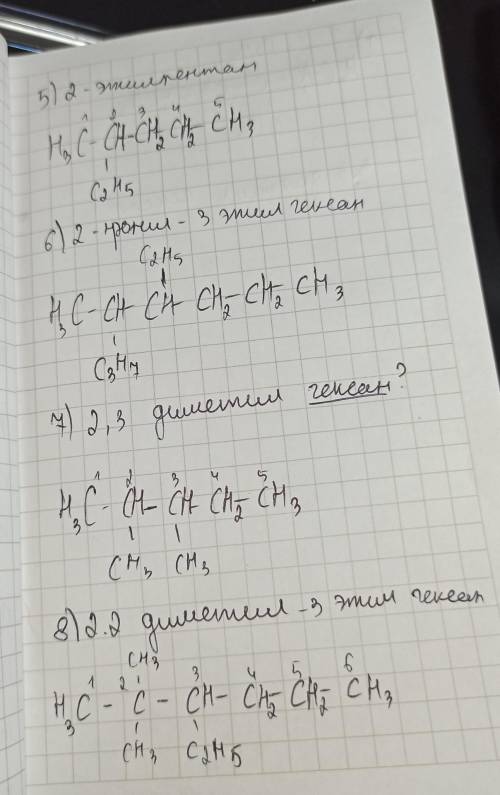 5) 2 - этилпентан
1 2 3 4 5
H₃C - CH - CH₂ CH₂ - CH₃
C₂H₅
6) 2 - пропил - 3 этил гексан
C₂H₅
H₃C - CH - CH - CH₂ - CH₂ CH₃
C₃H₇
7) 2,3 диметил гексан?
1 2 3 4 5
H₃C - CH - CH - CH₂ CH₃
CH₃ CH₃
8) 2.2 диметил - 3 этил гексан
CH₃ 3 4 5 6
H₃C¹ - ²C - CH - CH₂ CH₂ - CH₃
CH₃ C₂H₅